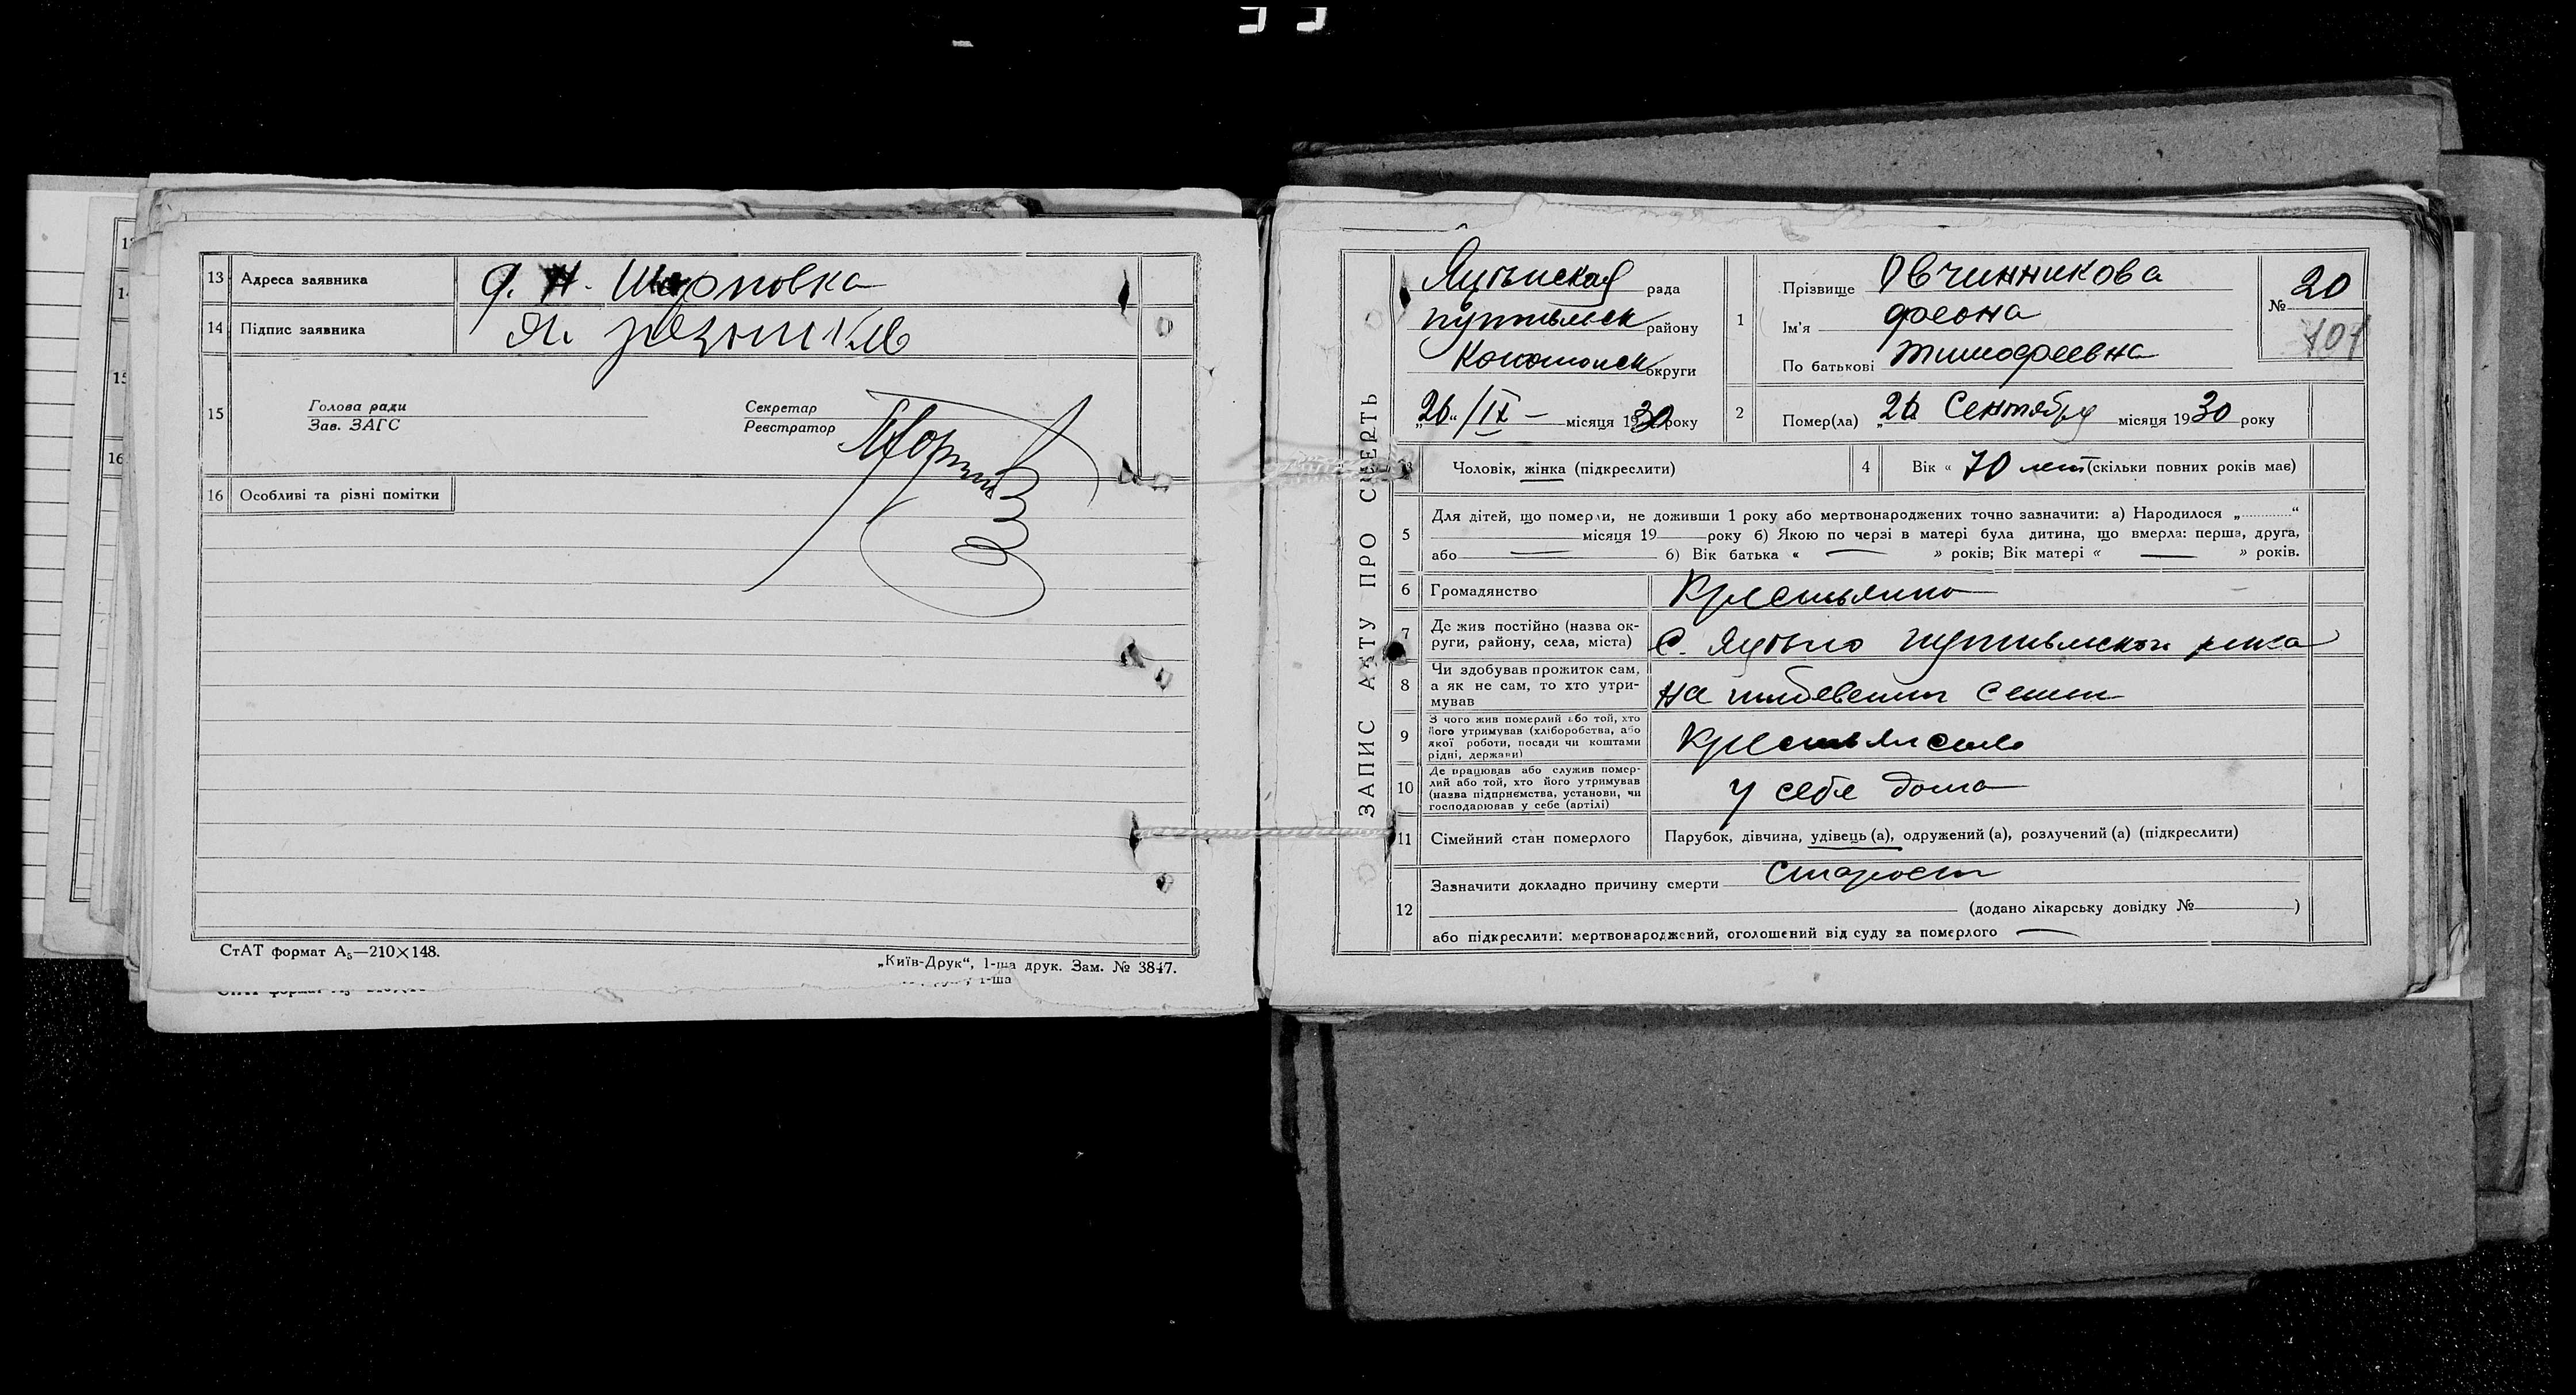 13 Адреса заявника
14 Підпис заявника
15 Голова ради
Зав. ЗАГС
Секретар
Реєстратор
16 Особливі та різні помітки
СтАТ формат А₅—210×148.
„Київ-Друк“, 1-ша друк. Зам. № 3847.
ЗАПИС АКТУ ПРО СМЕРТЬ
рада
району
округи
„26“ /IX — місяця 1930 року
1 Прізвище Овчинникова
Ім'я феона
По батькові Тимофеевна
№ 20
101
2 Помер(ла) „26 Сентября місяця 1930 року
3 Чоловік, жінка (підкреслити)
4 Вік « 70 лет (скільки повних років має)
5 Для дітей, що померли, не доживши 1 року або мертвонароджених точно зазначити: а) Народилося „............“
місяця 19 року б) Якою по черзі в матері була дитина, що вмерла: перша, друга,
або б) Вік батька « — » років; Вік матері « — » років.
6 Громадянство
7 Де жив постійно (назва ок-
руги, району, села, міста) С.
8 Чи здобував прожиток сам,
а як не сам, то хто утри-
мував
на иждевении семьи
9 З чого жив померлий або той, хто
його утримував (хліборобства, або
якої роботи, посади чи коштами
рідні, держави)
10 Де працював або служив помер-
лий або той, хто його утримував
(назва підприємства, установи, чи
господарював у себе (артілі)
у себе дома
11 Сімейний стан померлого Парубок, дівчина, удівець (а), одружений (а), розлучений (а) (підкреслити)
12 Зазначити докладно причину смерти Старость
(додано лікарську довідку № )
або підкреслити: мертвонароджений, оголошений від суду за померлого —